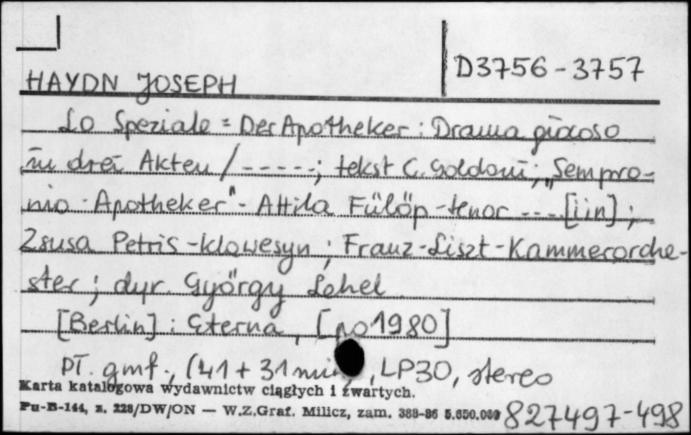 D3756-3757
HAYDN JOSEPH
Lo Speziale = Der Apotheker : Drama giocoso
in drei Akten / -----; tekst C. Goldoni; „Sempro-
nio - Apotheker" - Attila Fülöp - tenor --- [iin];
Zsusa Petris - klawesyn ; Franz-Liszt-Kammerorche-
ster ; dyr. György Lehel
[Berlin] : Eterna, [po 1980]
PŁ. gmf., (41 + 31 min), LP30, stereo
Karta katalogowa wydawnictw ciągłych i zwartych.
Pu-B-144, z. 228/DW/ON — W.Z.Graf. Milicz, zam. 388-86 5.650.000
827497-498